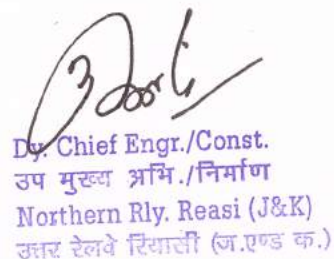 Dy. Chief Engr./Const.
उप मुख्य अभि./निर्माण
Northern Rly. Reasi (J&K)
उत्तर रेलवे रियासी (ज.एण्ड क.)